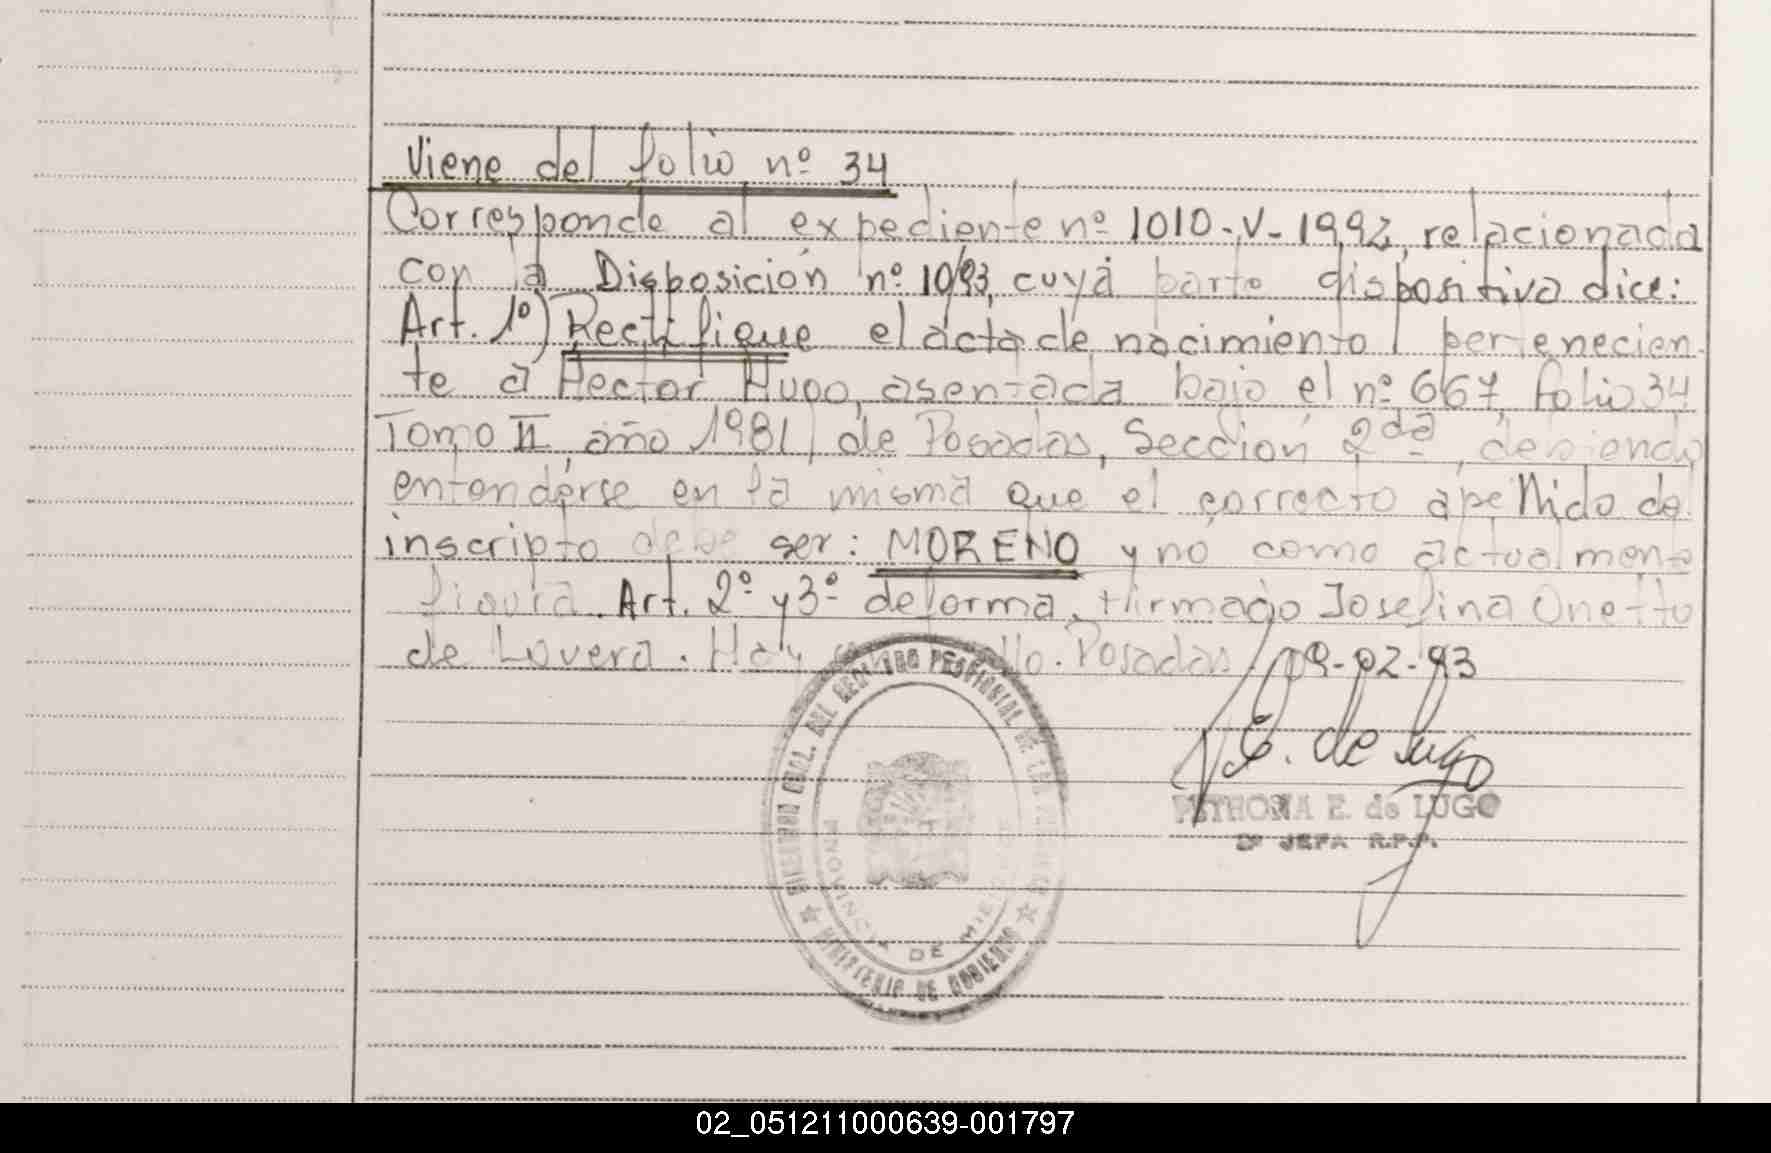 Viene del folio nº 34
Corresponde al expediente nº 1010-V-1992, relacionada
con la Disposición nº 10/93, cuya parte dispositiva dice:
Art. 1º) Rectifique el acta de nacimiento pertenecien
te a Hector Hugo, asentada bajo el nº 667, folio 34
Tomo II, año 1981, de Posadas, Sección 2da, debiendo
entenderse en la misma que el correcto apellido del
inscripto debe ser: MORENO y no como actualmente
figura. Art. 2º y 3º de forma. Firmado Josefina Onetto
de Lovera. Hay sello. Posadas, 09-02-93
E. de Lugo
PETRONA E. de LUGO
2º JEFA R.P.P.
DIRECCION GRAL. DEL REGISTRO PROVINCIAL DE LAS
PROVINCIA DE MISIONES
MINISTERIO DE GOBIERNO
02_051211000639-001797